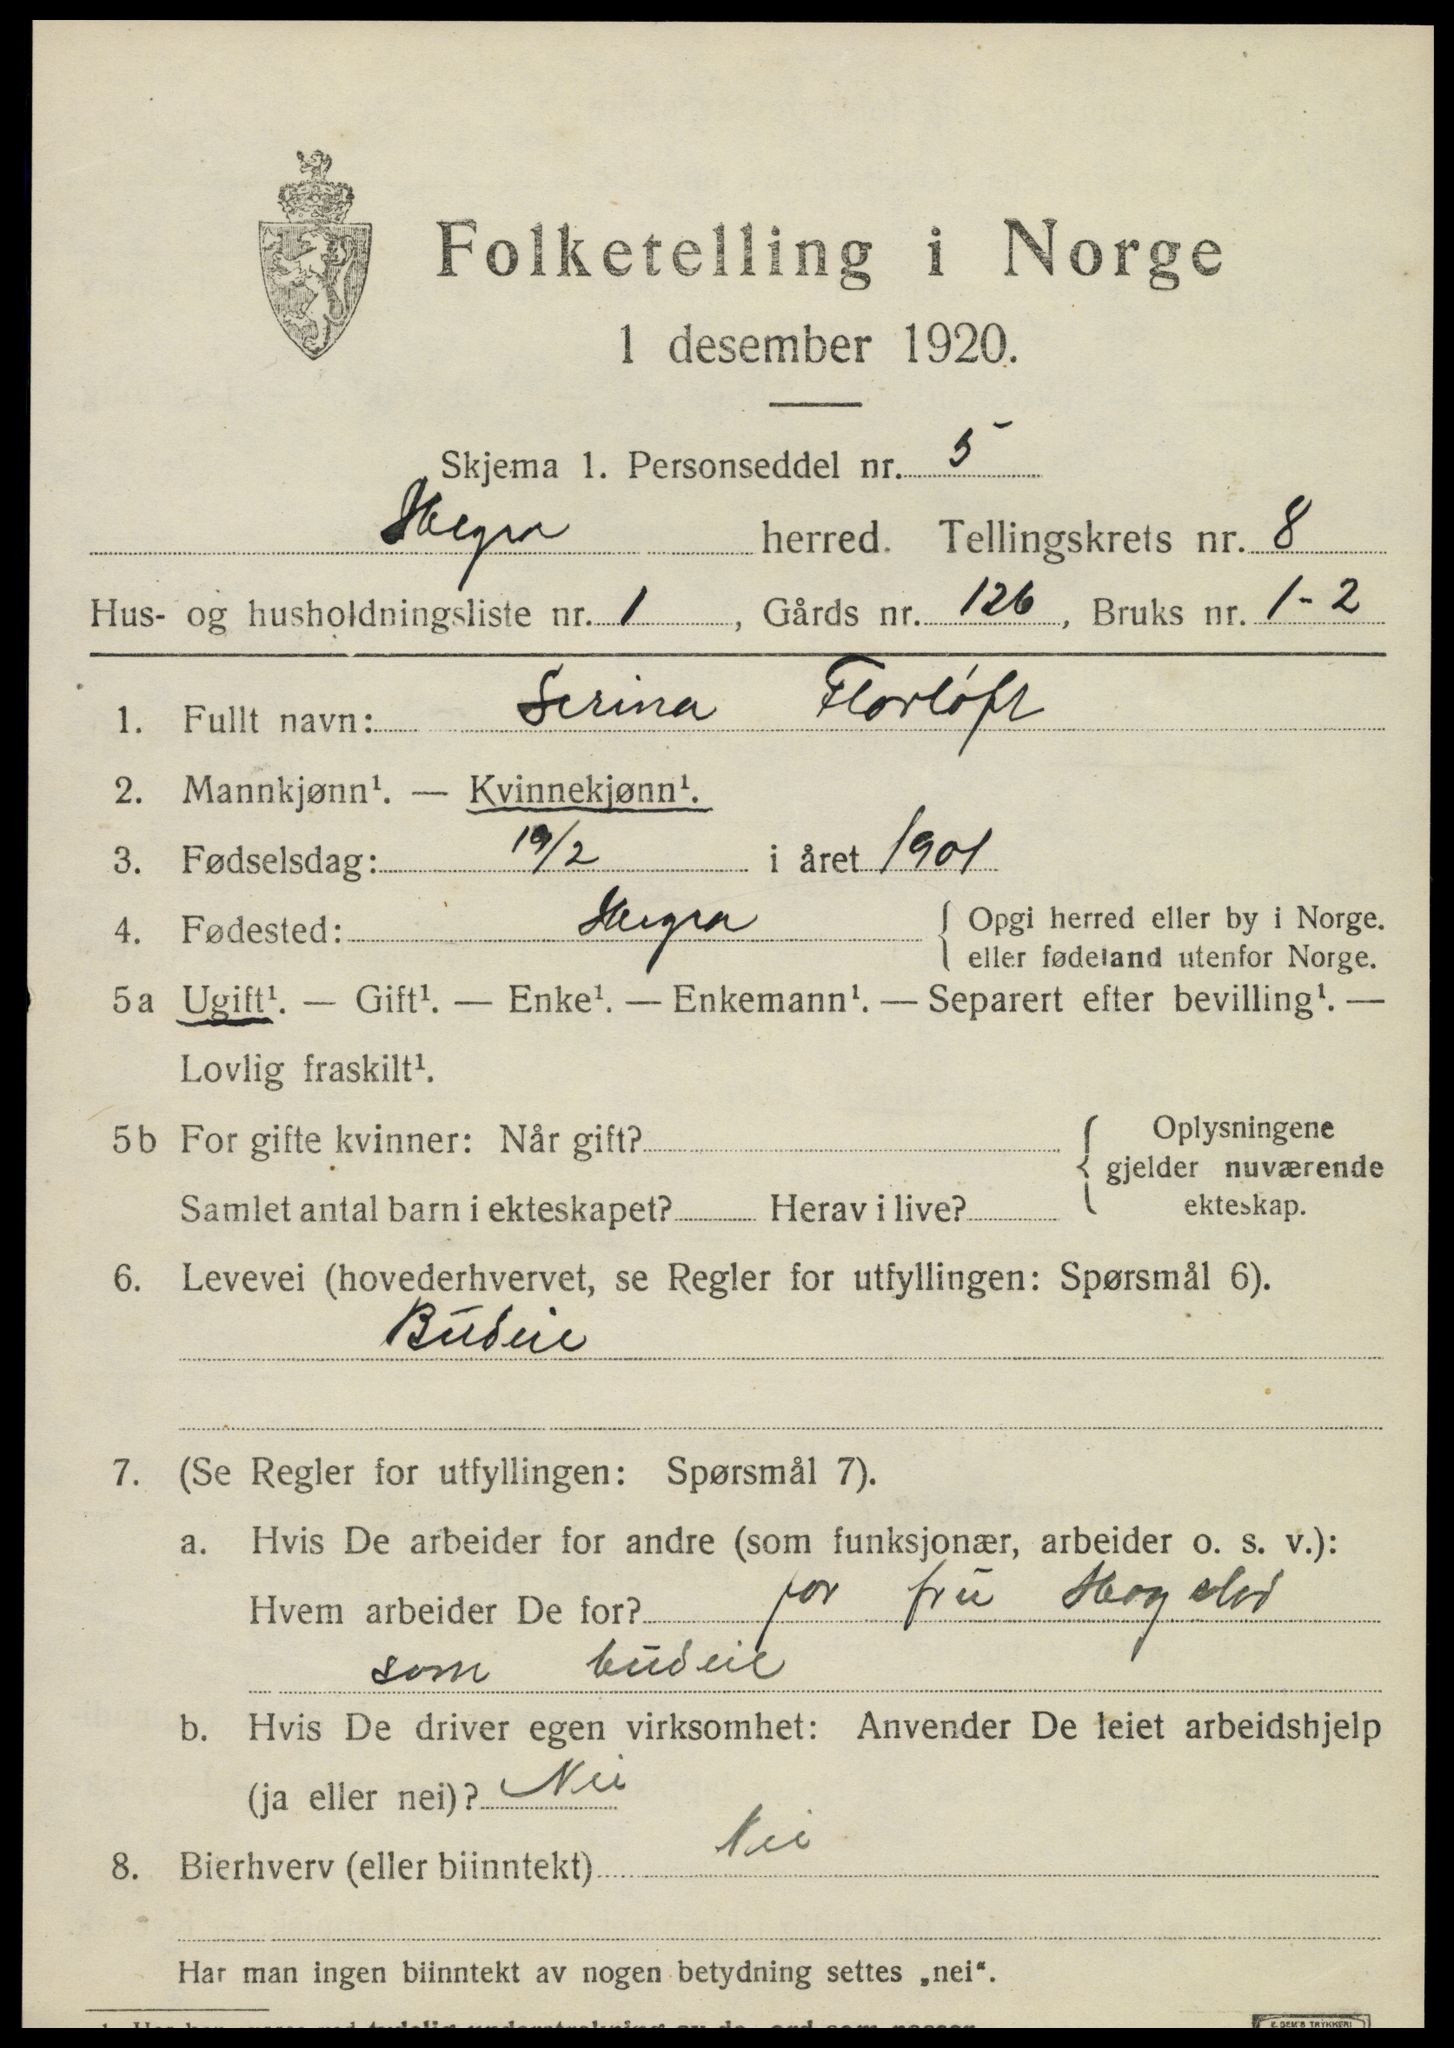 Folketelling i Norge
1 desember 1920.
Skjema 1. Personseddel nr. 5
Hegra herred. Tellingskrets nr. 8
Hus- og husholdningsliste nr. 1, Gårds nr. 126, Bruks nr. 1-2
1. Fullt navn: Serina Florløft
2. Mannkjønn¹. — Kvinnekjønn¹.
3. Fødselsdag: 19/2 i året 1901
4. Fødested: Hegra { Opgi herred eller by i Norge.
eller fødeland utenfor Norge.
5a Ugift¹. — Gift¹. — Enke¹. — Enkemann¹. — Separert efter bevilling¹. —
Lovlig fraskilt¹.
5b For gifte kvinner: Når gift? { Oplysningene
gjelder nuværende
Samlet antal barn i ekteskapet? Herav i live? ekteskap.
6. Levevei (hovederhvervet, se Regler for utfyllingen: Spørsmål 6).
Budeie
7. (Se Regler for utfyllingen: Spørsmål 7).
a. Hvis De arbeider for andre (som funksjonær, arbeider o. s. v.):
Hvem arbeider De for? for fru
som budeie
b. Hvis De driver egen virksomhet: Anvender De leiet arbeidshjelp
(ja eller nei)? Nei
8. Bierhverv (eller biinntekt) Nei
Har man ingen biinntekt av nogen betydning settes „nei“.